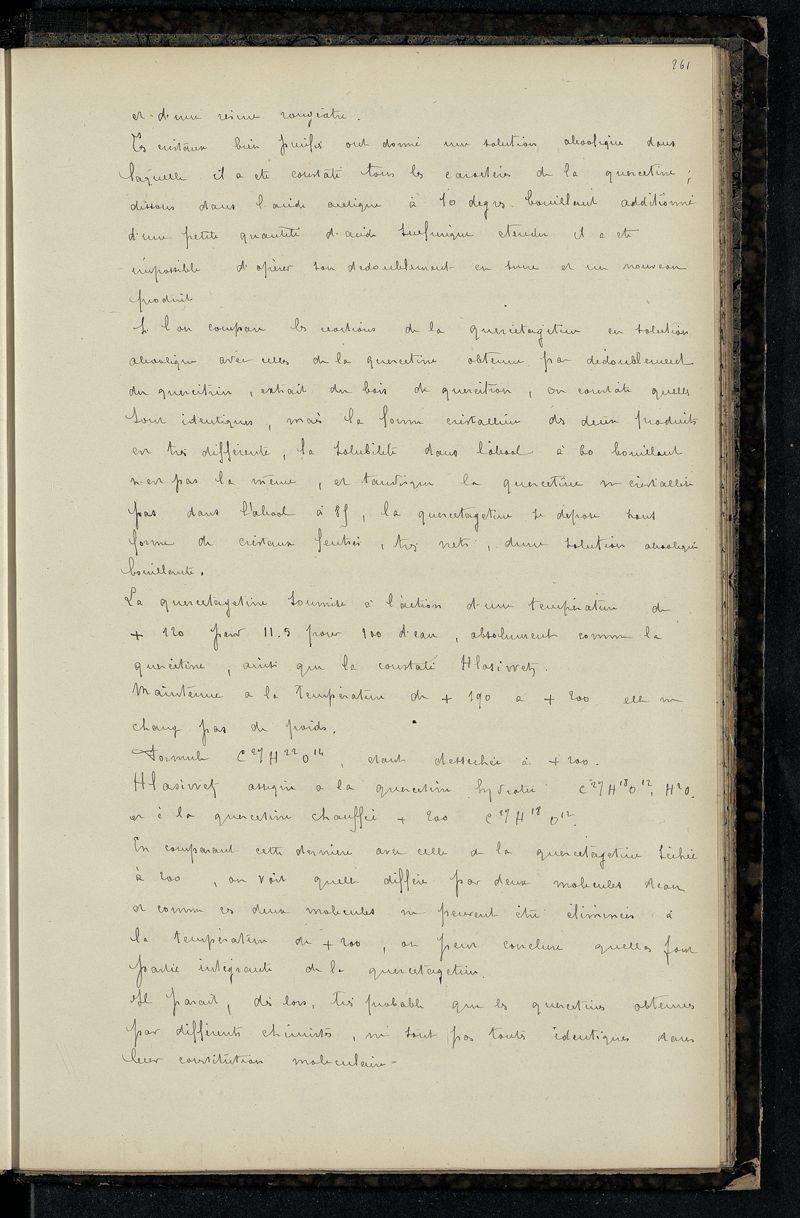 261
et d'une résine rougeatre.
Ces cristaux bien purifiés ont donné une solution alcoolique dans
laquelle il a été constaté tous les caractères de la quercetine;
dissous dans l'acide acetique à 10 degres bouillant additionné
d'une petite quantité d'acide sulfurique etendu il a ete
impossible d'opérer son dedoublement en sucre et un nouveau
produit
Si l'on compare les reactions de la quercetagetine en solution
alcoolique avec celles de la quercetine obtenue par dédoublement
du quercitrin, extrait du bois de quercitron, on constate quelles
sont identiques, mais la forme cristalline des deux produits
est très différente, la solubilité dans l'alcool à 60 bouillant
n'est pas la même, et tandisque la quercetine ne cristallise
pas dans l'alcool à 85, la quercetagetine se depose sous
forme de cristaux feutrés, très nets, d'une solution alcoolique
bouillante.
La quercetagetine soumise à l'action d'une température de
+ 120 perd 11.5 pour 100 d'eau, absolument comme la
quercetine, ainsi que la constaté Hlasiwetz.
Maintenue a la température de + 190 a + 200 elle ne
change pas de poids.
Formule C²⁷H²²O¹⁴, etant dessechée à + 200.
Hlasiwetz assigne a la quercetine hydratée C²⁷H¹⁸O¹², H²O.
et à la quercetine chauffée + 200 C²⁷H¹⁸O¹².
En comparant cette derniere avec celle de la quercetagetine séchée
à 200, on voit quelle diffère par deux molecules d'eau
et comme ces deux molecules ne peuvent être éliminées à
la température de + 200, on peut conclure quelles font
partie intégrante de la quercetagetine.
Il parait, dès lors, très probable que les quercetines obtenues
par différents chimistes, ne sont pas toutes identiques dans
leur constitution moleculaire -